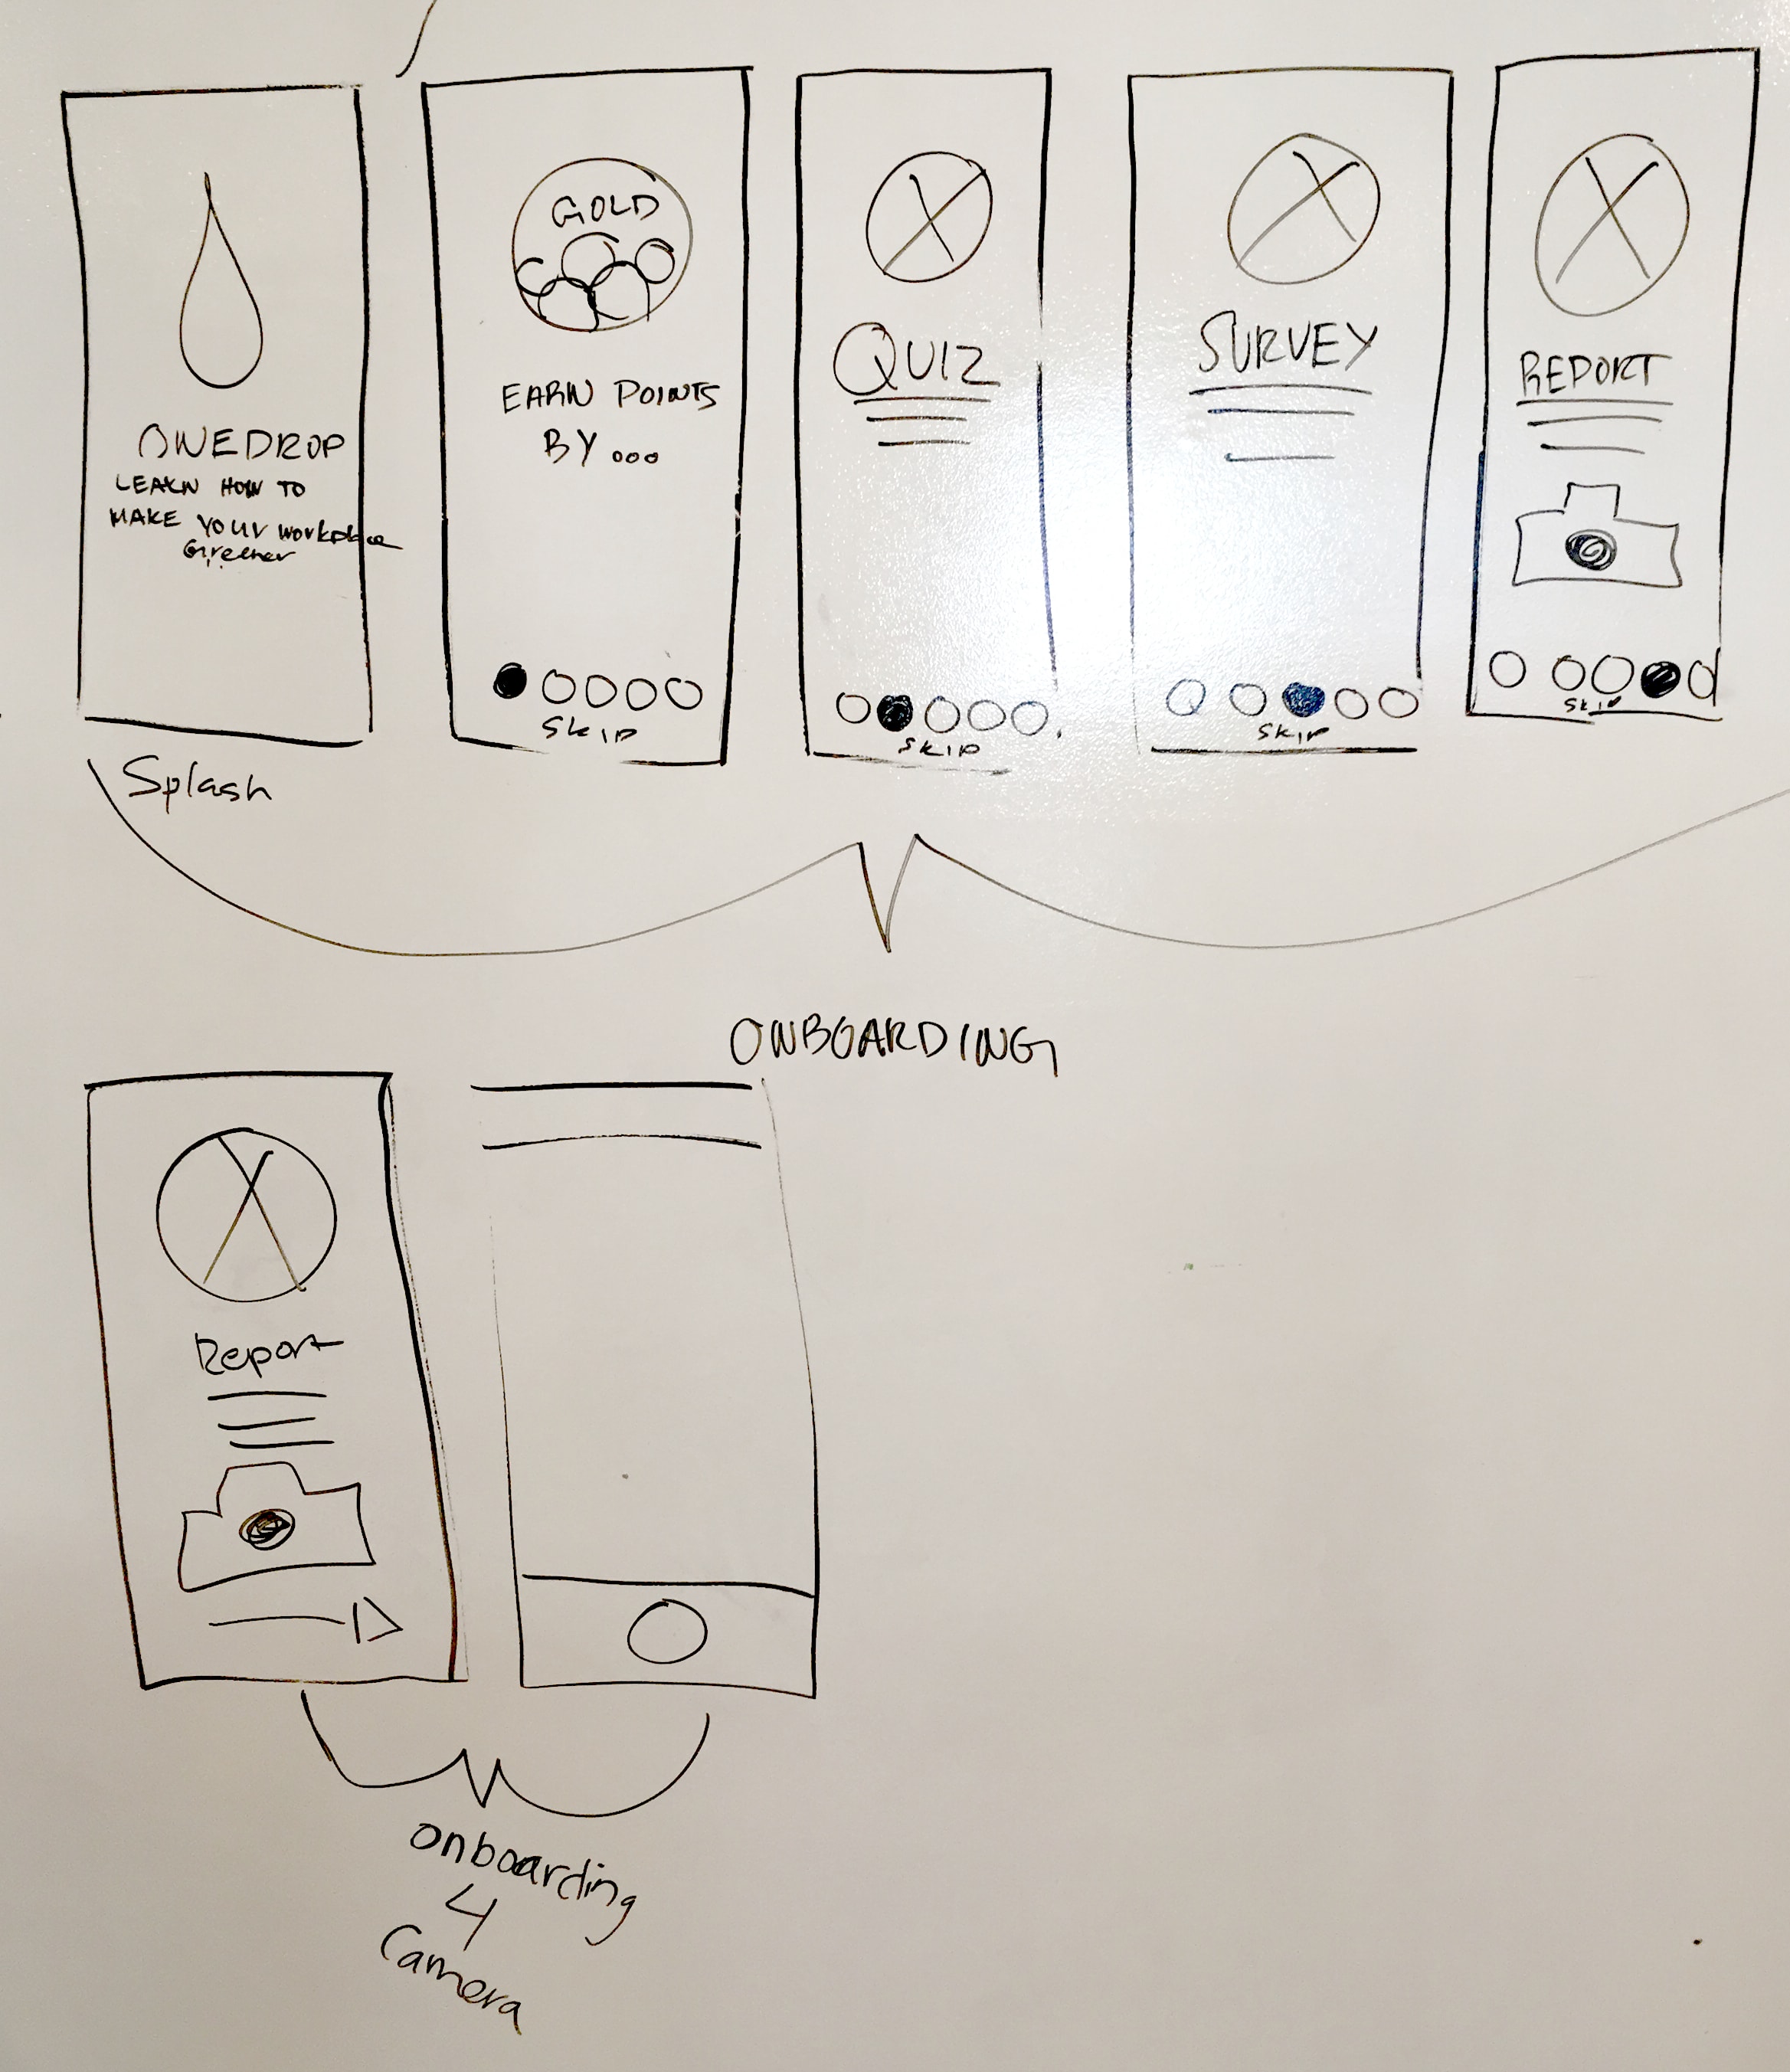 ONEDROP
LEARN HOW TO
MAKE YOUR workplace
Greener
Splash
GOLD
EARN POINTS
BY ...
Skip
QUIZ
SKIP
SURVEY
SKIP
REPORT
SKIP
ONBOARDING
Report
Onboarding
4
Camera